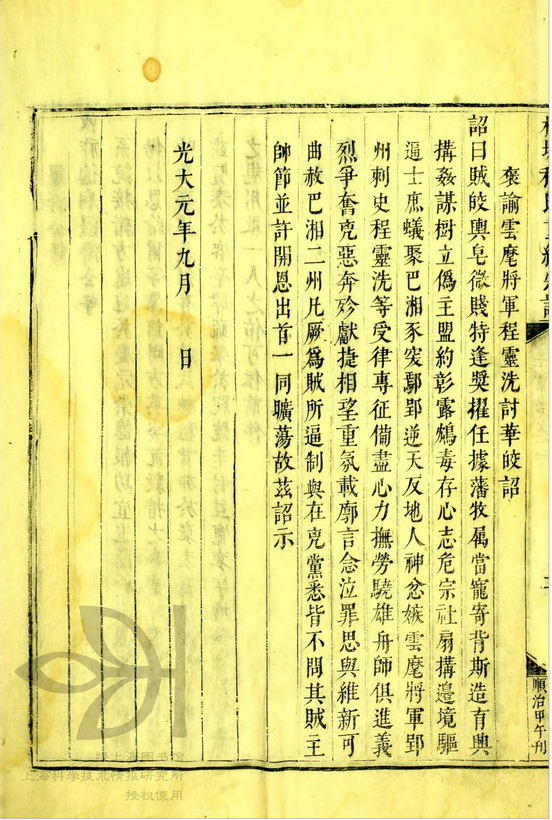 褒諭雲麾將軍程靈洗討華皎詔
詔曰賊皎輿皂微賤特逢奬擢任據藩牧屬當寵寄背斯造育興
搆姦謀樹立僞主盟約彰露鴆毒存心志危宗社扇搆邊境驅
逼士庶蟻聚巴湘豕突鄢郢逆天反地人神忿嫉雲麾將軍郢
州刺史程靈洗等受律專征備盡心力撫勞驍雄舟師俱進義
烈爭奮克惡奔殄獻捷相望重氛載廓言念泣罪思與維新可
曲赦巴湘二州凡厥爲賊所逼制與在兇黨悉皆不問其賊主
帥節並許開恩出首一同曠蕩故茲詔示
光大元年九月　日
順治甲午刊
上海图书馆
上海科学技术情报研究所
授权使用